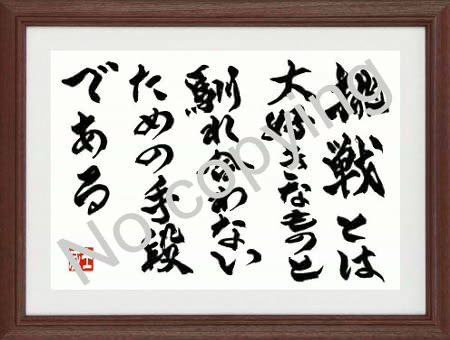 挑戦とは
大好きなものと
馴れ合わない
ための手段
である
No copying